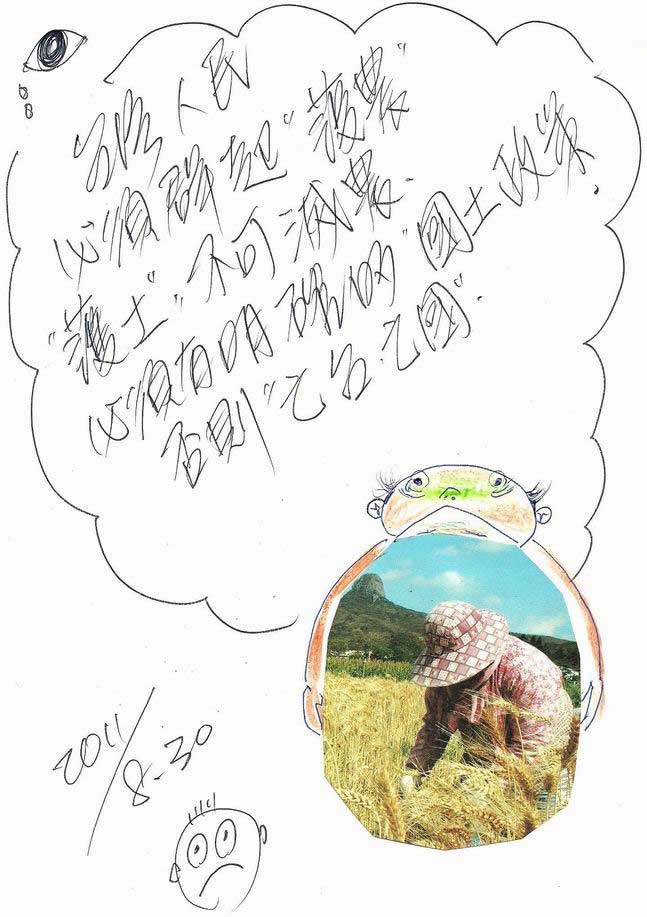 台灣人民
必須起"護農"
"護土". 不可滅農.
必須有明確的"國土政策.
否則"亡台.亡國".
2011/8.30